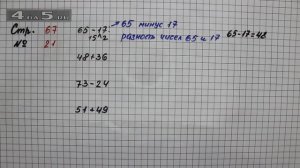 4 PA 5
Стр. 67
№ 21
65-17
15^2
65 минус 17
разность чисел 65 и 17
65-17=48
48+36
73-24
51+49